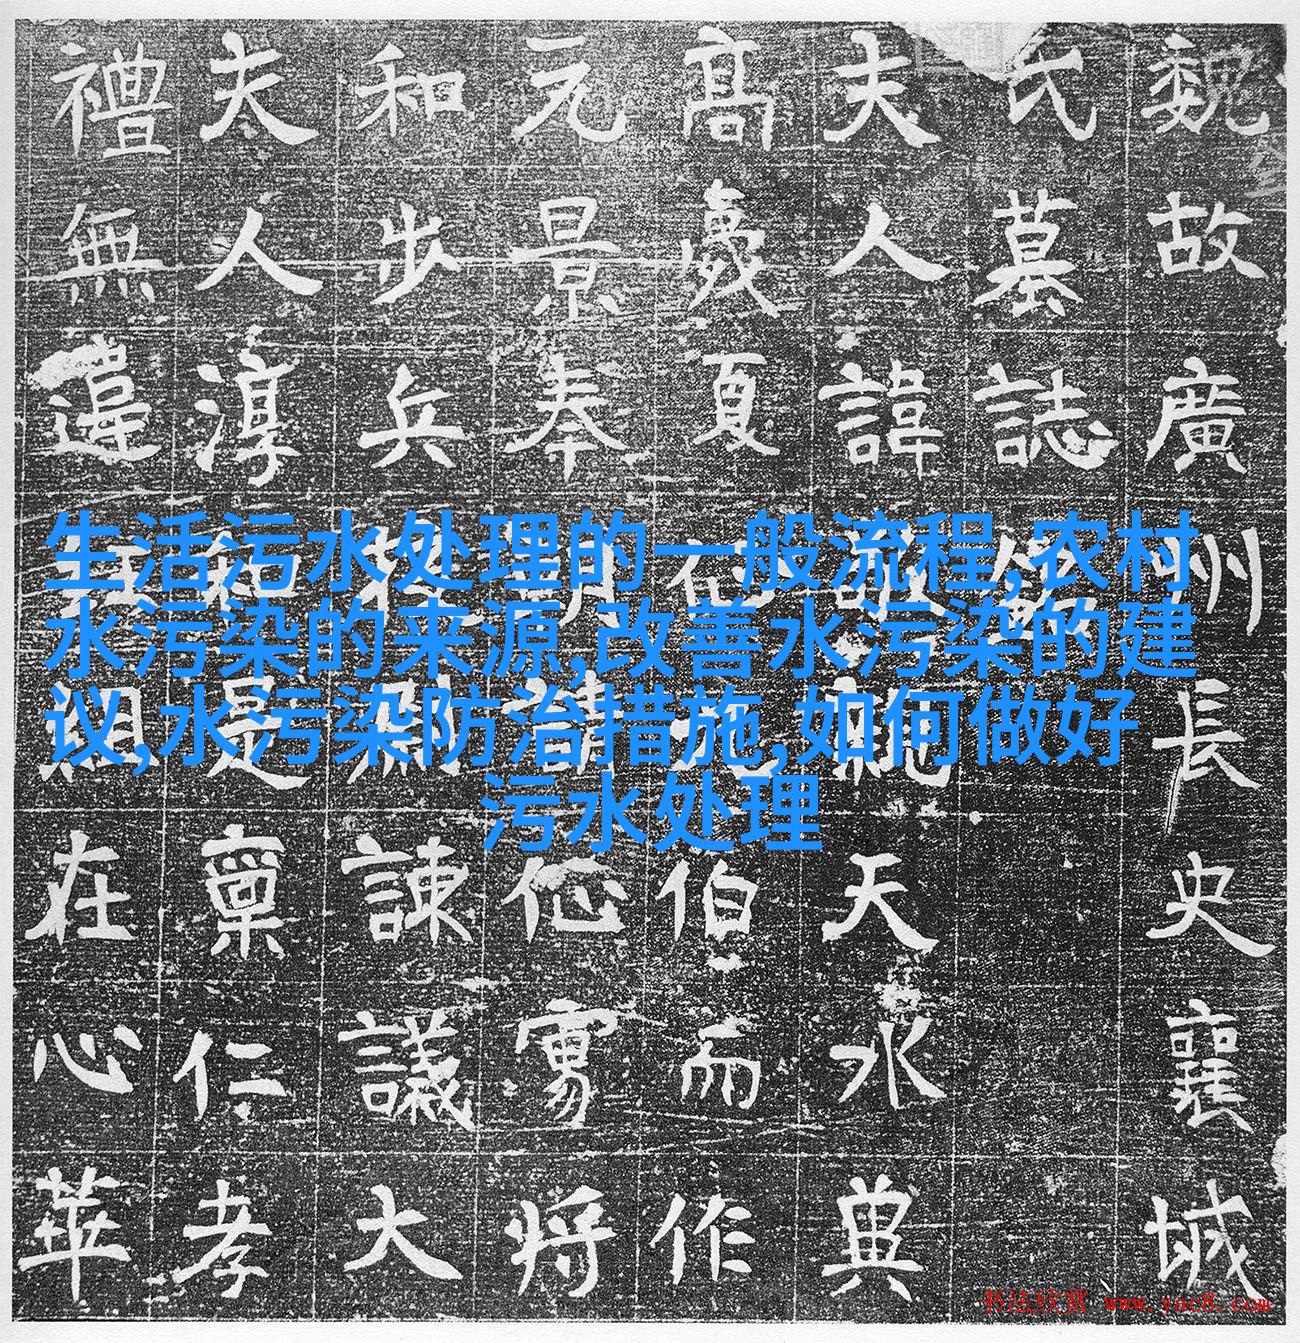 生活污水处理的一般流程,农村
水污染的来源,改善水污染的建
议,水污染防治措施,如何做好
污水处理
魏故廣州長史襄城
氏墓誌銘
夫人諱敬天水典
高夏伯而作
元景奉朝請將
和步兵諫議大
夫人淳和是稟仁孝
禮無違組在心華
书法欣赏 www.yac8.com